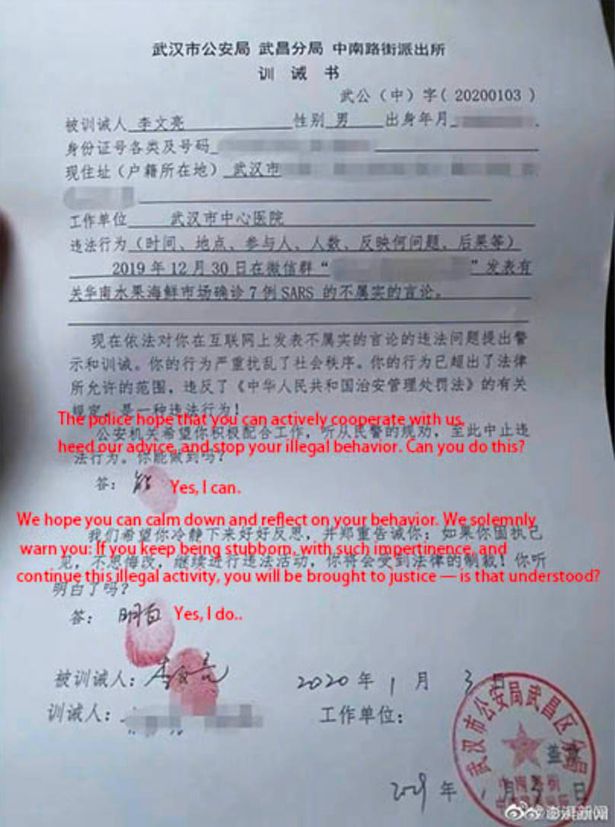 武汉市公安局 武昌分局 中南路街派出所
训 诫 书
武公（中）字（20200103）
被训诫人 李文亮 性别 男 出身年月
身份证号各类及号码
现住址（户籍所在地） 武汉市
工作单位 武汉市中心医院
违法行为（时间、地点、参与人、人数、反映何问题、后果等）
2019年12月30日在微信群“ ”发表有
关华南水果海鲜市场确诊7例SARS的不属实的言论。
现在依法对你在互联网上发表不属实的言论的违法问题提出警
示和训诫。你的行为严重扰乱了社会秩序。你的行为已超出了法律
所允许的范围，违反了《中华人民共和国治安管理处罚法》的有关
规定，是一种违法行为！
The police hope that you can actively cooperate with us,
公安机关希望你积极配合工作，听从民警的规劝，至此中止违
heed our advice, and stop your illegal behavior. Can you do this?
法行为。你能做到吗？
答： 能 Yes, I can.
We hope you can calm down and reflect on your behavior. We solemnly
我们希望你冷静下来好好反思，并郑重告诫你：如果你固执己
warn you: If you keep being stubborn, with such impertinence, and
见，不思悔改，继续进行违法活动，你将会受到法律的制裁！你听
continue this illegal activity, you will be brought to justice — is that understood?
明白了吗？
答： 明白 Yes, I do..
被训诫人：李文亮 2020年1月3日
训诫人： 工作单位：
武汉市公安局武昌区分局
盖章
年1月3日
@澎湃新闻